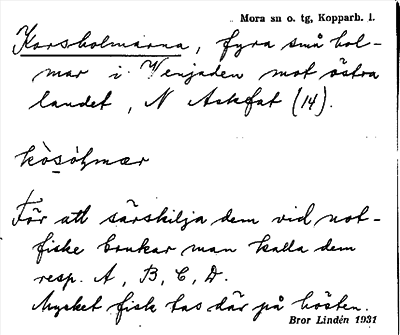 Mora sn o. tg, Kopparb. l.
Korsholmarna, fyra små hol-
mar i Venjaden mot östra
landet, N Askfat (14).
kò̱sóḷmær
För att särskilja dem vid not-
fiske brukar man kalla dem
resp. A, B, C, D.
Mycket fisk tas där på hösten.
Bror Lindén 1931